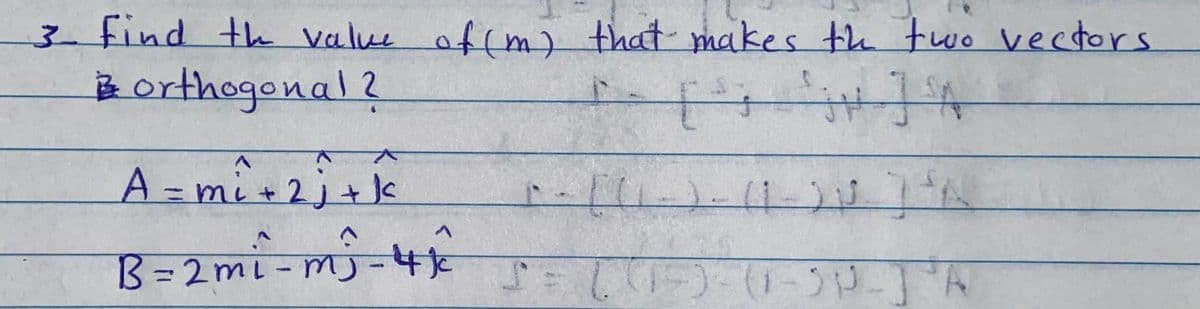 3- Find th value of (m) that makes th two vectors
orthogonal?
A = mî + 2ĵ + k̂
B = 2mî - mĵ - 4k̂